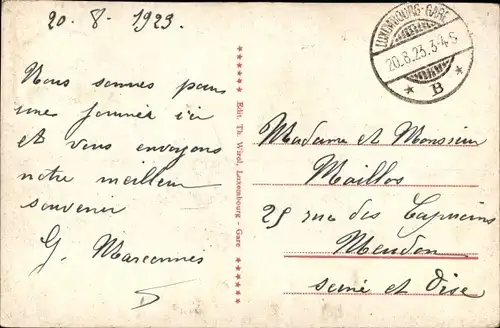 20. 8. 1923.
Nous sommes pour
une journée ici
et vous envoyons
notre meilleur
souvenir
G. Marconnes
Edit. Th. Wirol, Luxembourg - Gare
LUXEMBOURG-GARE
20.8.23.3-4S
B
Madame et Monsieur
Maillos
25 rue des Capucins
Meudon
Seine et Oise